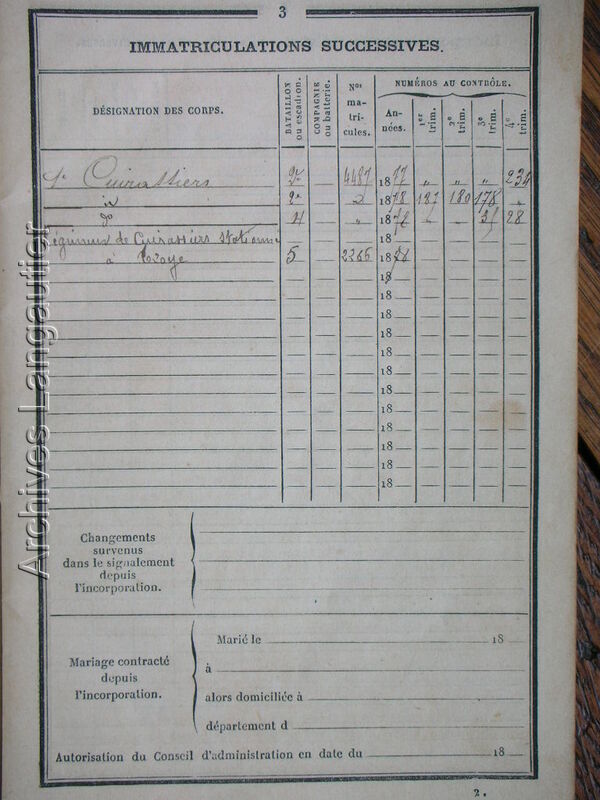 3
IMMATRICULATIONS SUCCESSIVES.
DÉSIGNATION DES CORPS.
BATAILLON ou escadron.
COMPAGNIE ou batterie.
Nos ma- tri- cules.
NUMÉROS AU CONTRÔLE.
An- nées.
1er trim.
2e trim.
3e trim.
4e trim.
Cuirassiers 4487 1877 " " " 234
1878 127 180 178 "
do 4 " 1878 28
de Cuirassiers 18
à Troye 5 2266 1878
18
18
18
18
18
18
18
18
18
18
18
18
Changements
survenus
dans le signalement
depuis
l'incorporation.
Mariage contracté
depuis
l'incorporation.
Marié le 18
à
alors domiciliée à
département d
Autorisation du Conseil d'administration en date du 18
2.
Archives Langautier